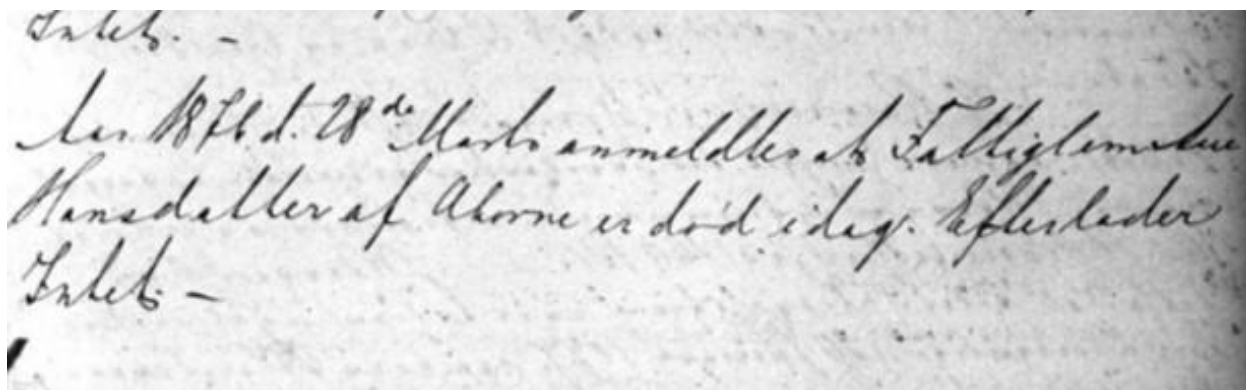 Intet. –
Aar 1876 d. 28de Marts anmeldtes at Fattiglem Ane
Hansdatter af Aborne er død idag. Efterlader
Intet. –